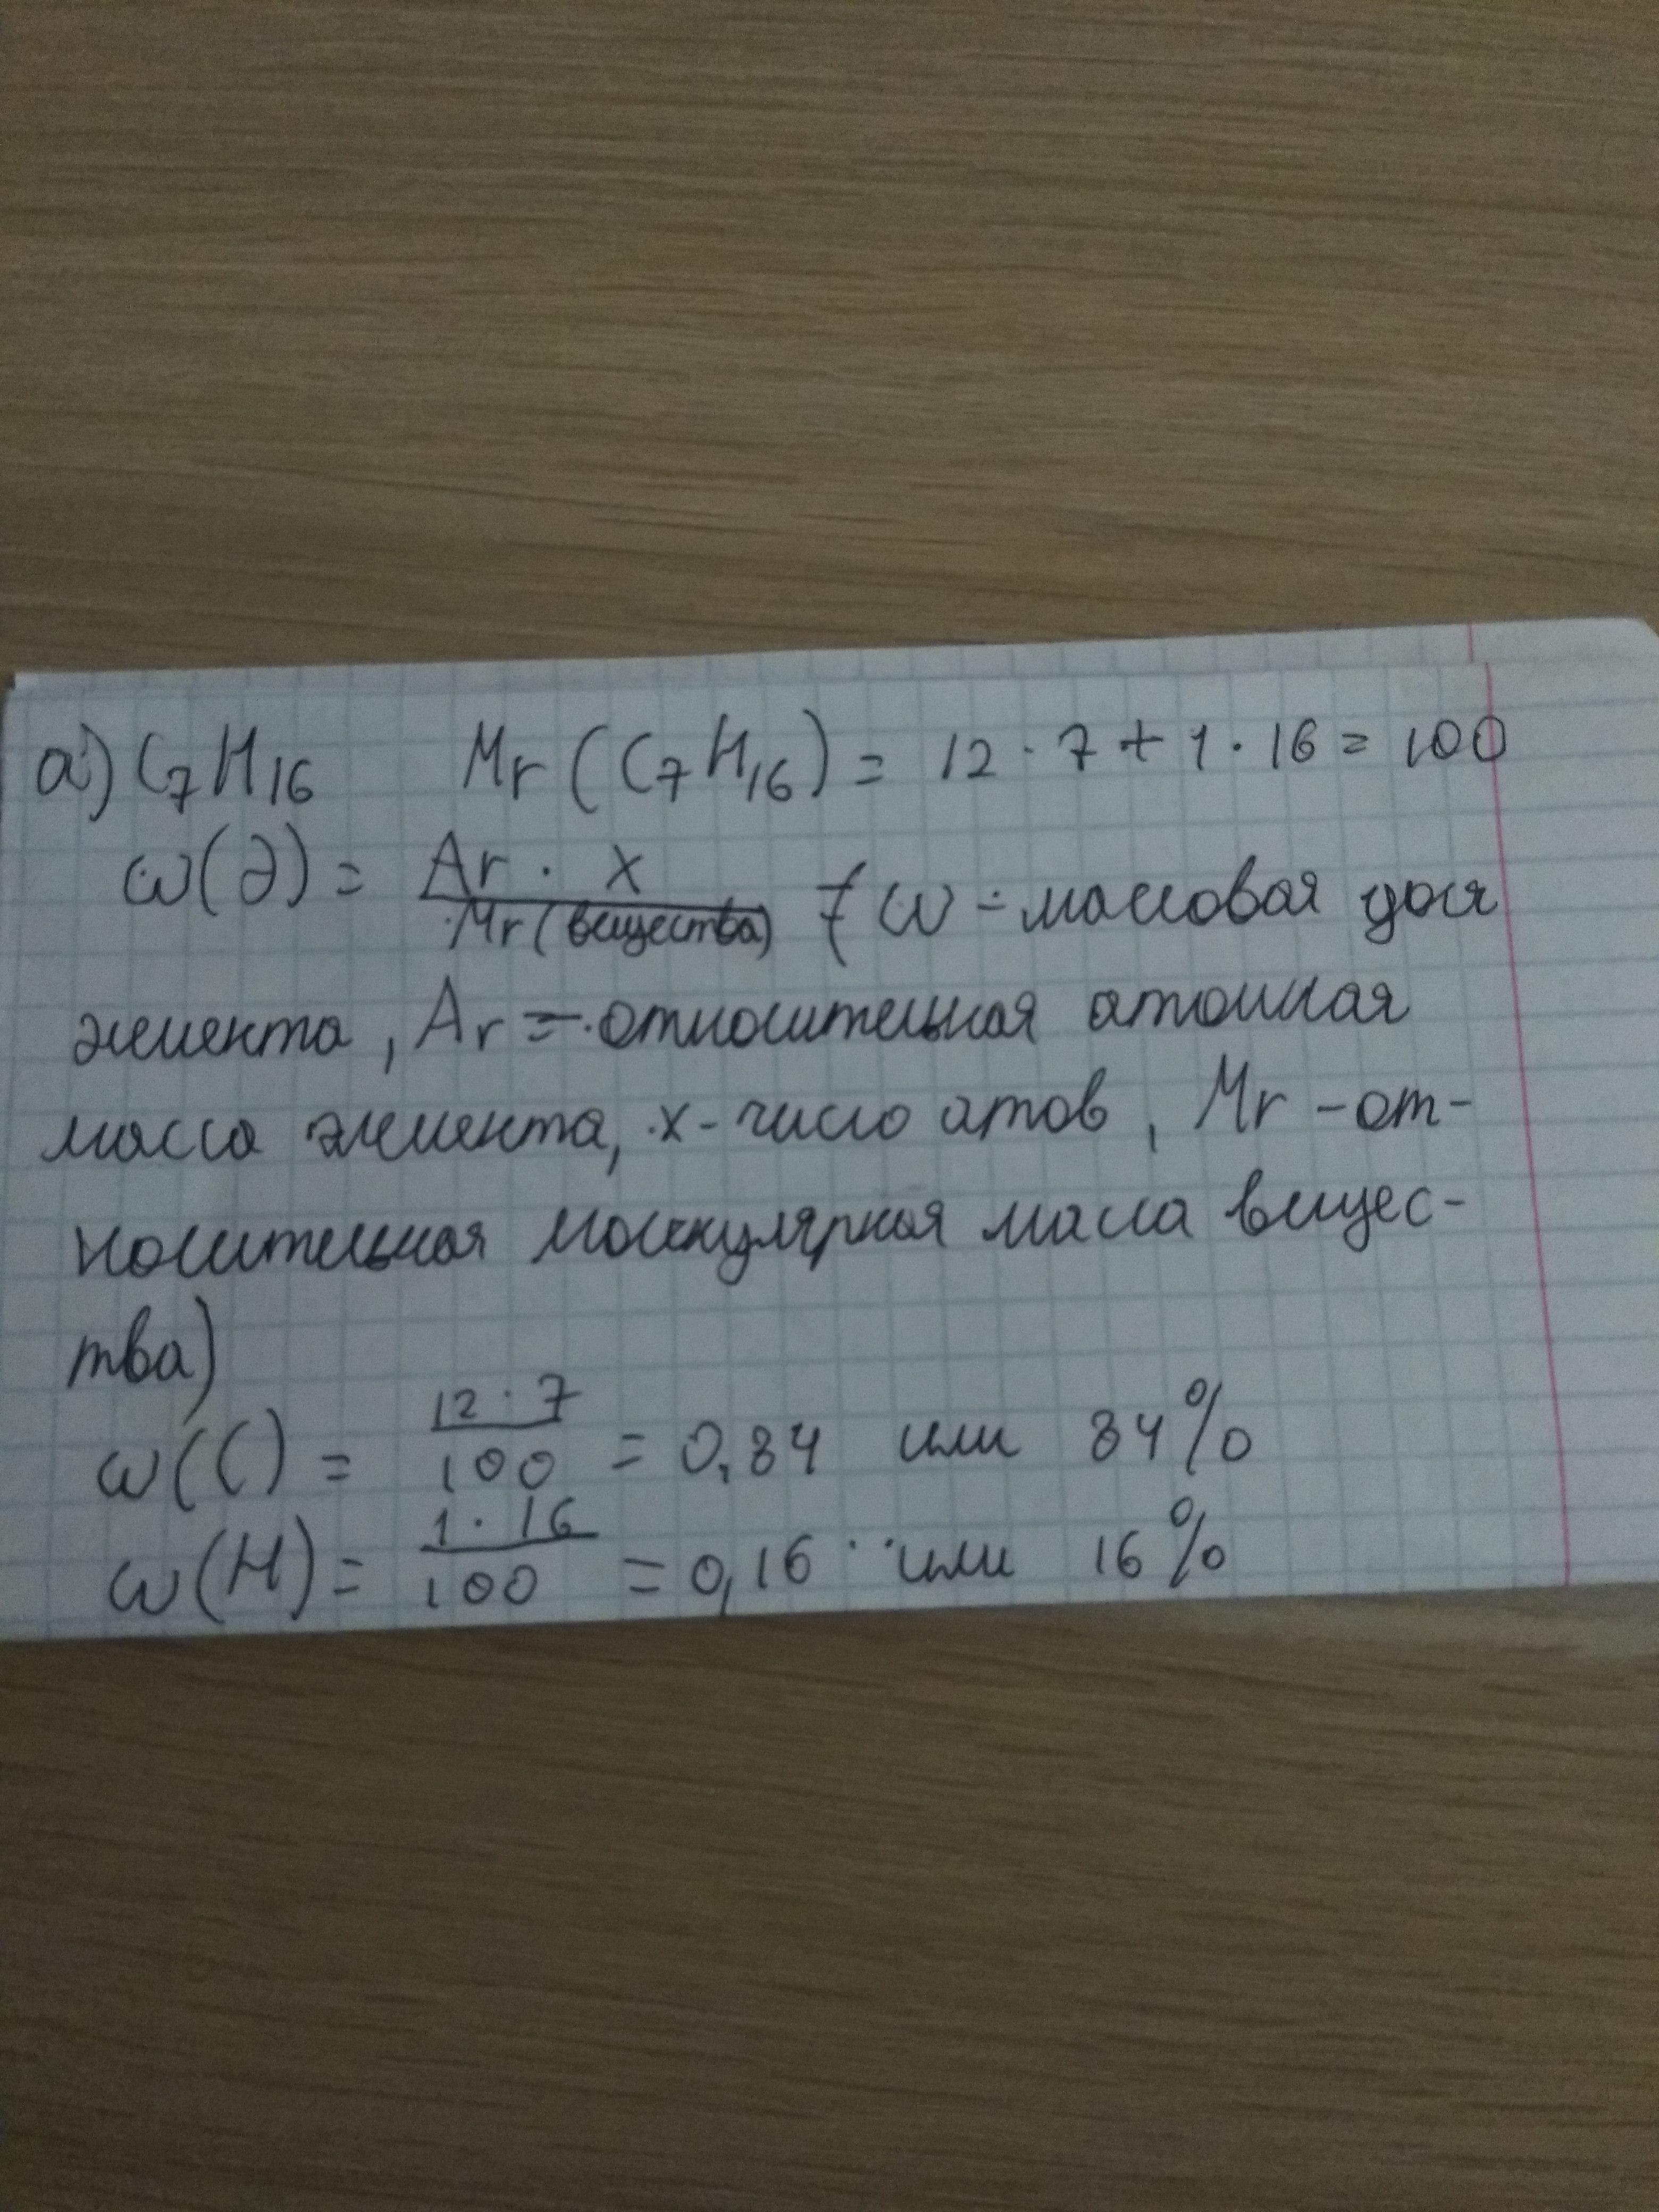 а) C₇H₁₆ Mr(C₇H₁₆) = 12 · 7 + 1 · 16 = 100
ω(Э) = Ar · x / Mr(вещества) (ω - массовая доля
элемента, Ar - относительная атомная
масса элемента, x - число атов, Mr - от-
носительная молекулярная масса вещес-
тва)
ω(C) = 12 · 7 / 100 = 0,84 или 84%
ω(H) = 1 · 16 / 100 = 0,16 или 16%